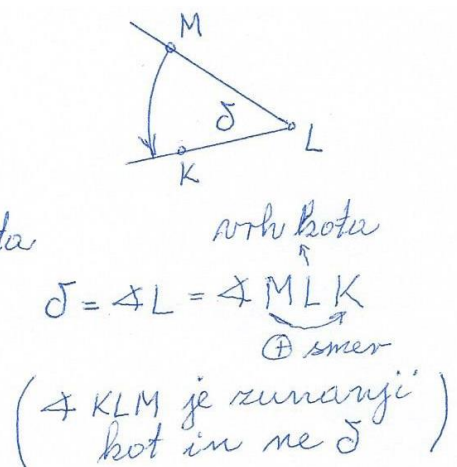 M
δ
L
K
ta
vrh kota
δ = ∢L = ∢ MLK
⊕ smer
(∢ KLM je zunanji
kot in ne δ)